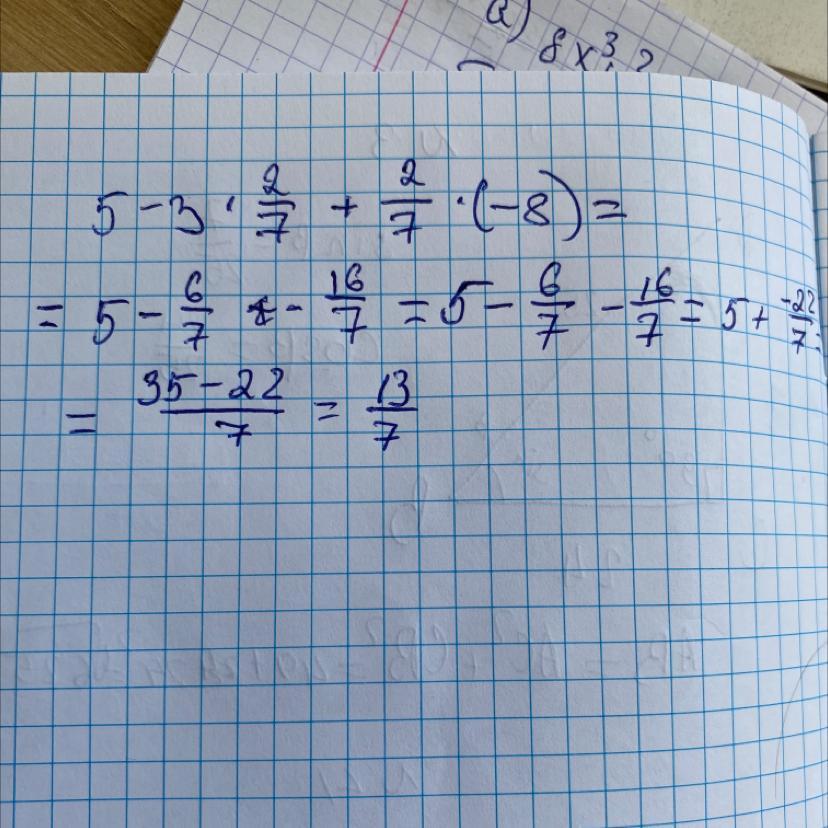 a) 8x³
5 - 3 · 2/7 + 2/7 · (-8) =
= 5 - 6/7 - 16/7 = 5 - 6/7 - 16/7 = 5 + -22/7 =
= 35-22/7 = 13/7